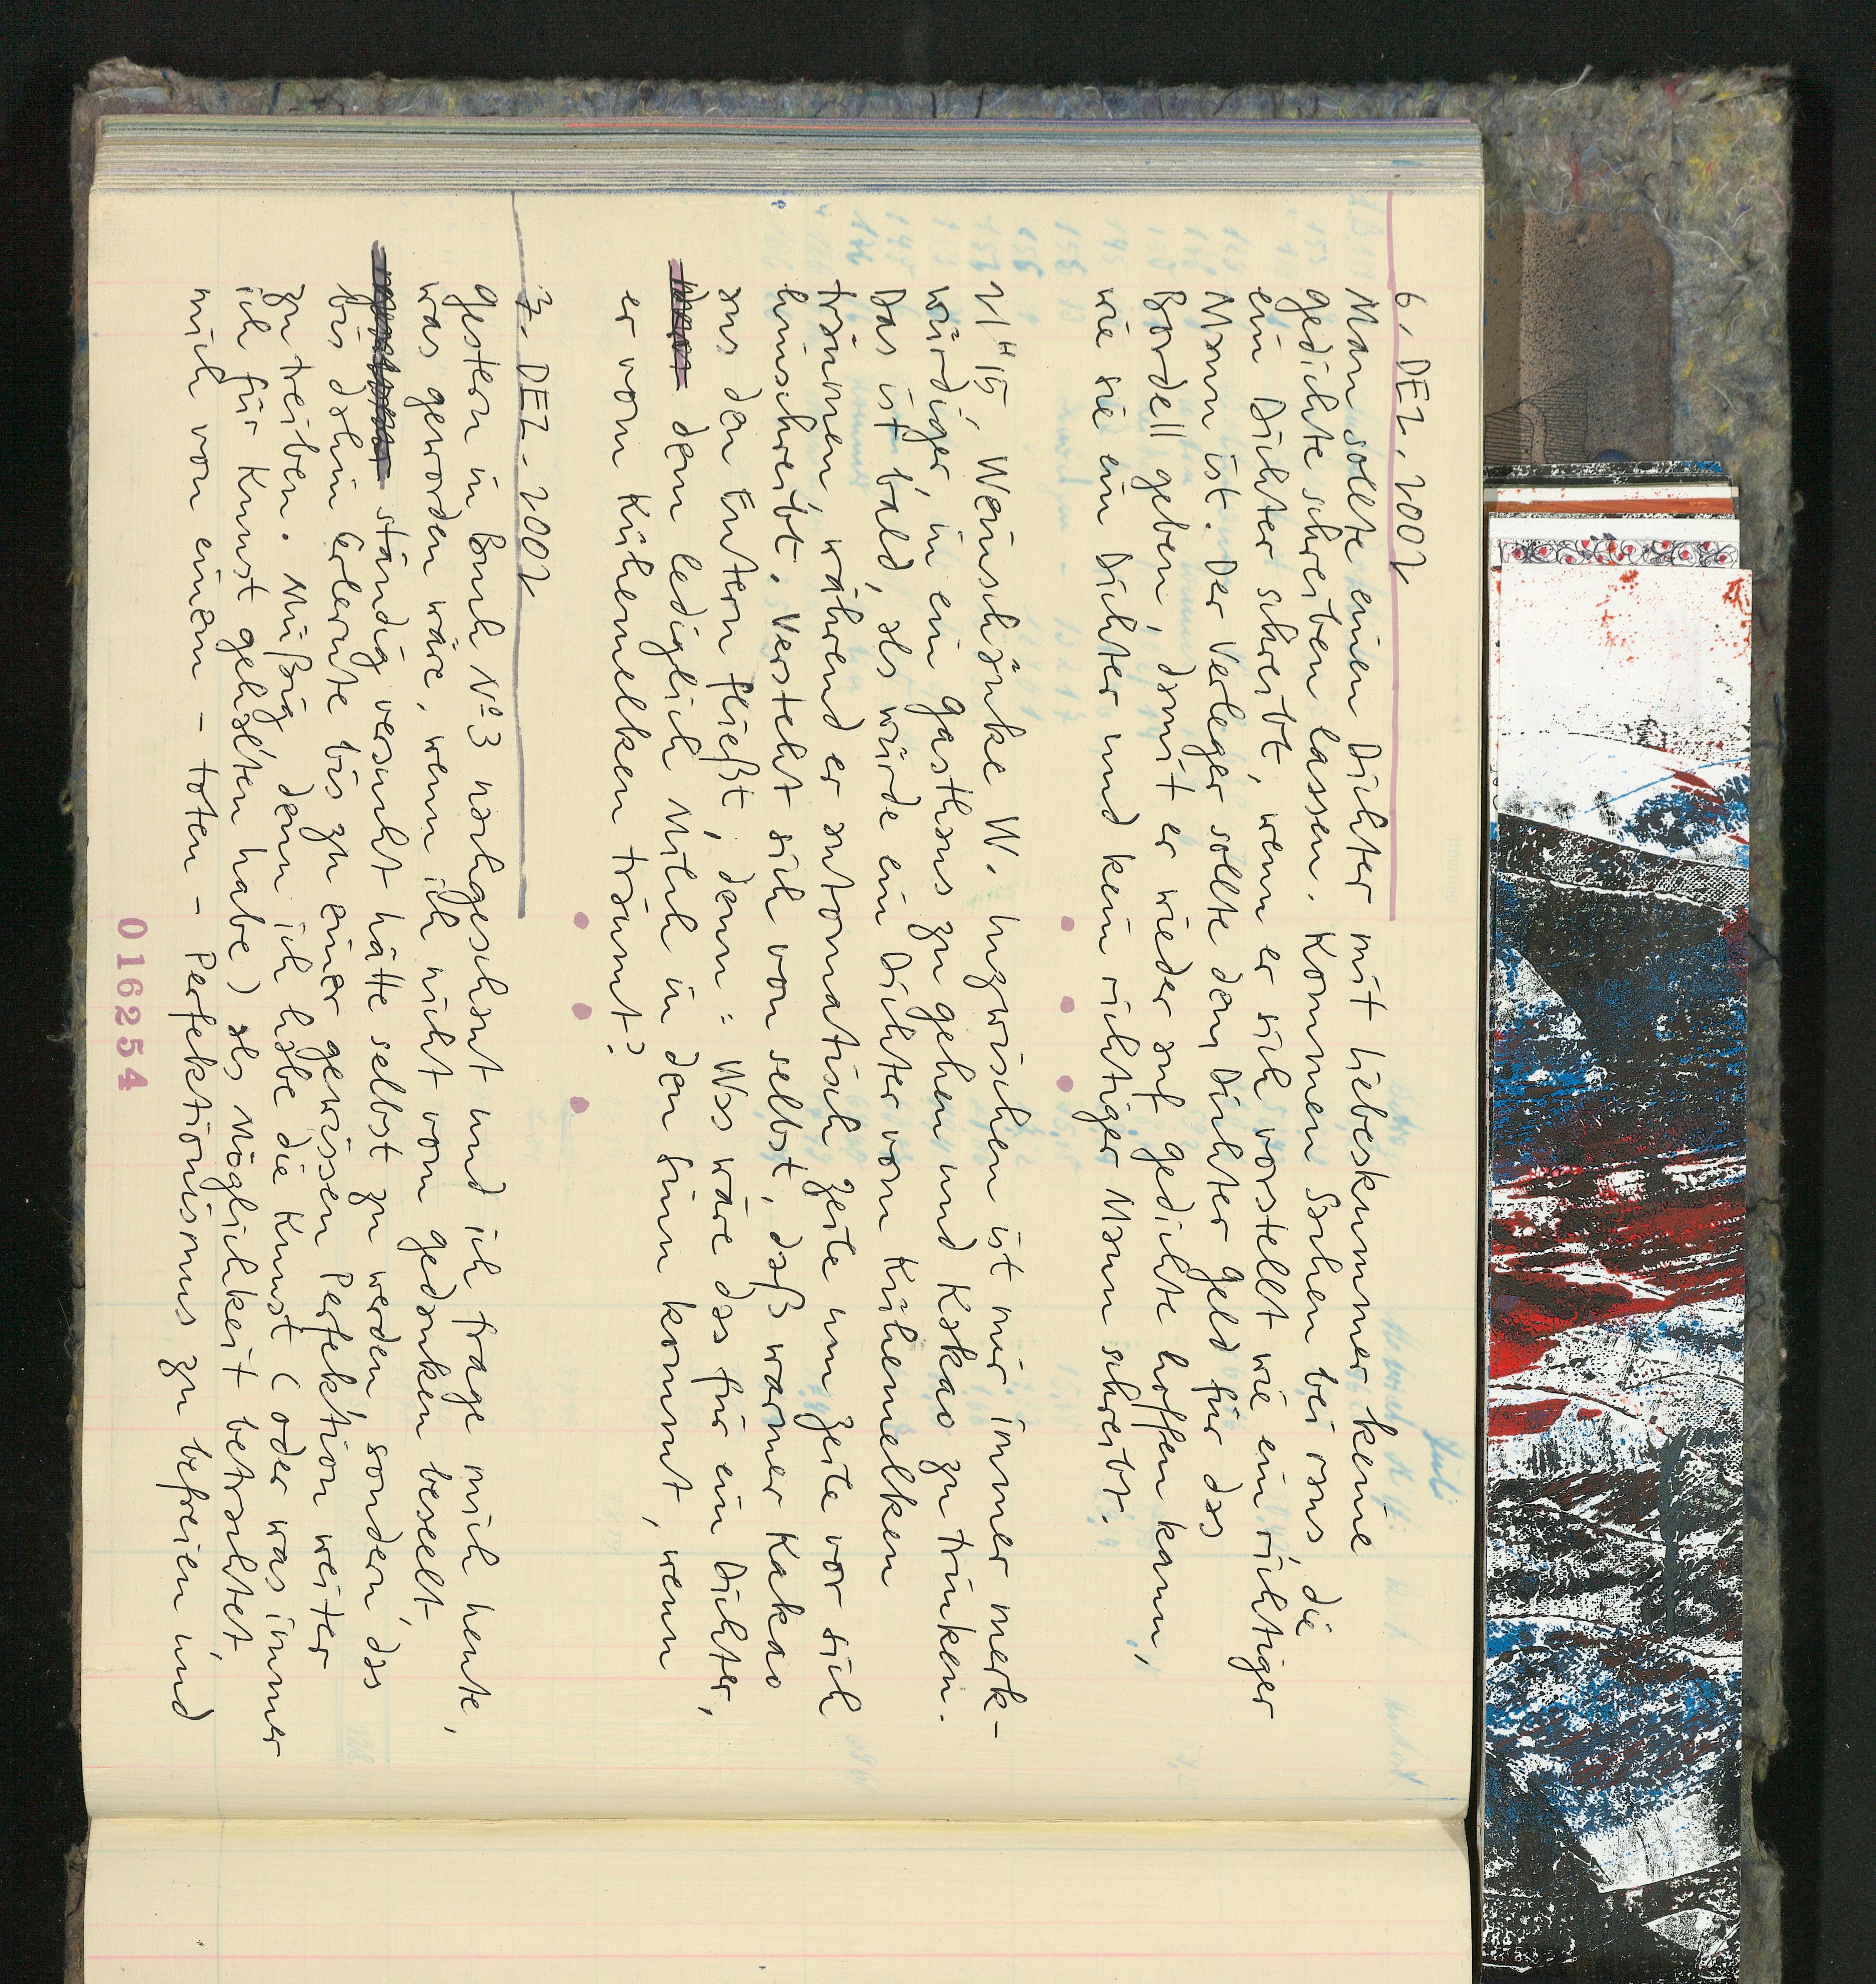 6. DEZ. 2002
Man sollte einen Dichter mit Liebeskummer keine
Gedichte schreiben lassen. Kommen Sachen bei raus, die
ein Dichter schreibt, wenn er sich vorstellt wie ein richtiger
Mann ist. Der Verleger sollte dem Dichter Geld für das
Bordell geben, damit er wieder auf Gedichte hoffen kann,
wie sie ein Dichter und kein richtiger Mann schreibt.
21H15, Weinschänke W. Inzwischen ist mir immer merk-
würdiger, in ein Gasthaus zu gehen und Kakao zu trinken.
Das ist bald, als würde ein Dichter vom Kühemelken
träumen, während er automatisch Zeile um Zeile vor sich
hinschreibt. Versteht sich von selbst, daß warmer Kakao
aus den Eutern fließt, denn: Was wäre das für ein Dichter,
dem lediglich Milch in den Sinn kommt, wenn
er vom Kühemelken träumt?
7. DEZ. 2002
Gestern in Buch No 3 nachgeschaut und ich frage mich heute,
was geworden wäre, wenn ich nicht vom Gedanken beseelt,
ständig versucht hätte selbst zu werden, sondern das
bis dahin Erlernte bis zu einer gewissen Perfektion weiter
zu treiben. Müßig, denn ich habe die Kunst (oder was immer
ich für Kunst gehalten habe) als Möglichkeit betrachtet,
mich von einem - toten - Perfektionismus zu befreien und
016254